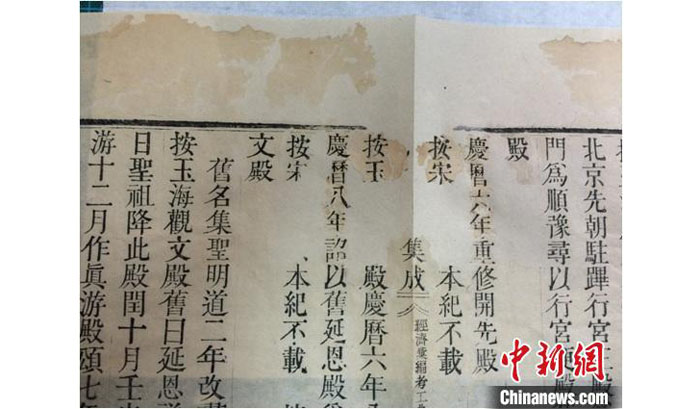 北京先朝駐蹕行宮
門爲順豫尋以行宮便殿
殿
慶曆六年重修開先殿
按宋 本紀不載
集成 經濟彙編考工
按玉 殿慶曆六年
慶曆八年詔以舊延恩殿
按宋 本紀不載
文殿
舊名集聖明道二年改
按玉海觀文殿舊日延恩
日聖祖降此殿閏十月壬
游十二月作眞游殿頌七年
中新網
Chinanews.com